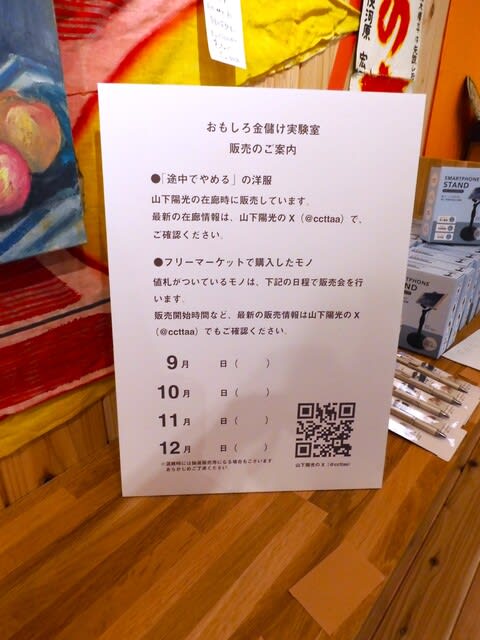 おもしろ金儲け実験室
販売のご案内
●「途中でやめる」の洋服
山下陽光の在廊時に販売しています。
最新の在廊情報は、山下陽光のX（@ccttaa）で、
ご確認ください。
●フリーマーケットで購入したモノ
値札がついているモノは、下記の日程で販売会を行
います。
販売開始時間など、最新の販売情報は山下陽光のX
（@ccttaa）でもご確認ください。
9月　日（　）
10月　日（　）
11月　日（　）
12月　日（　）
※混雑時には抽選販売等になる場合もございます
あらかじめご了承ください
山下陽光のX（@ccttaa）
の
河原 宏
SMARTPHONE
STAND
SMARTPHONE
STAND